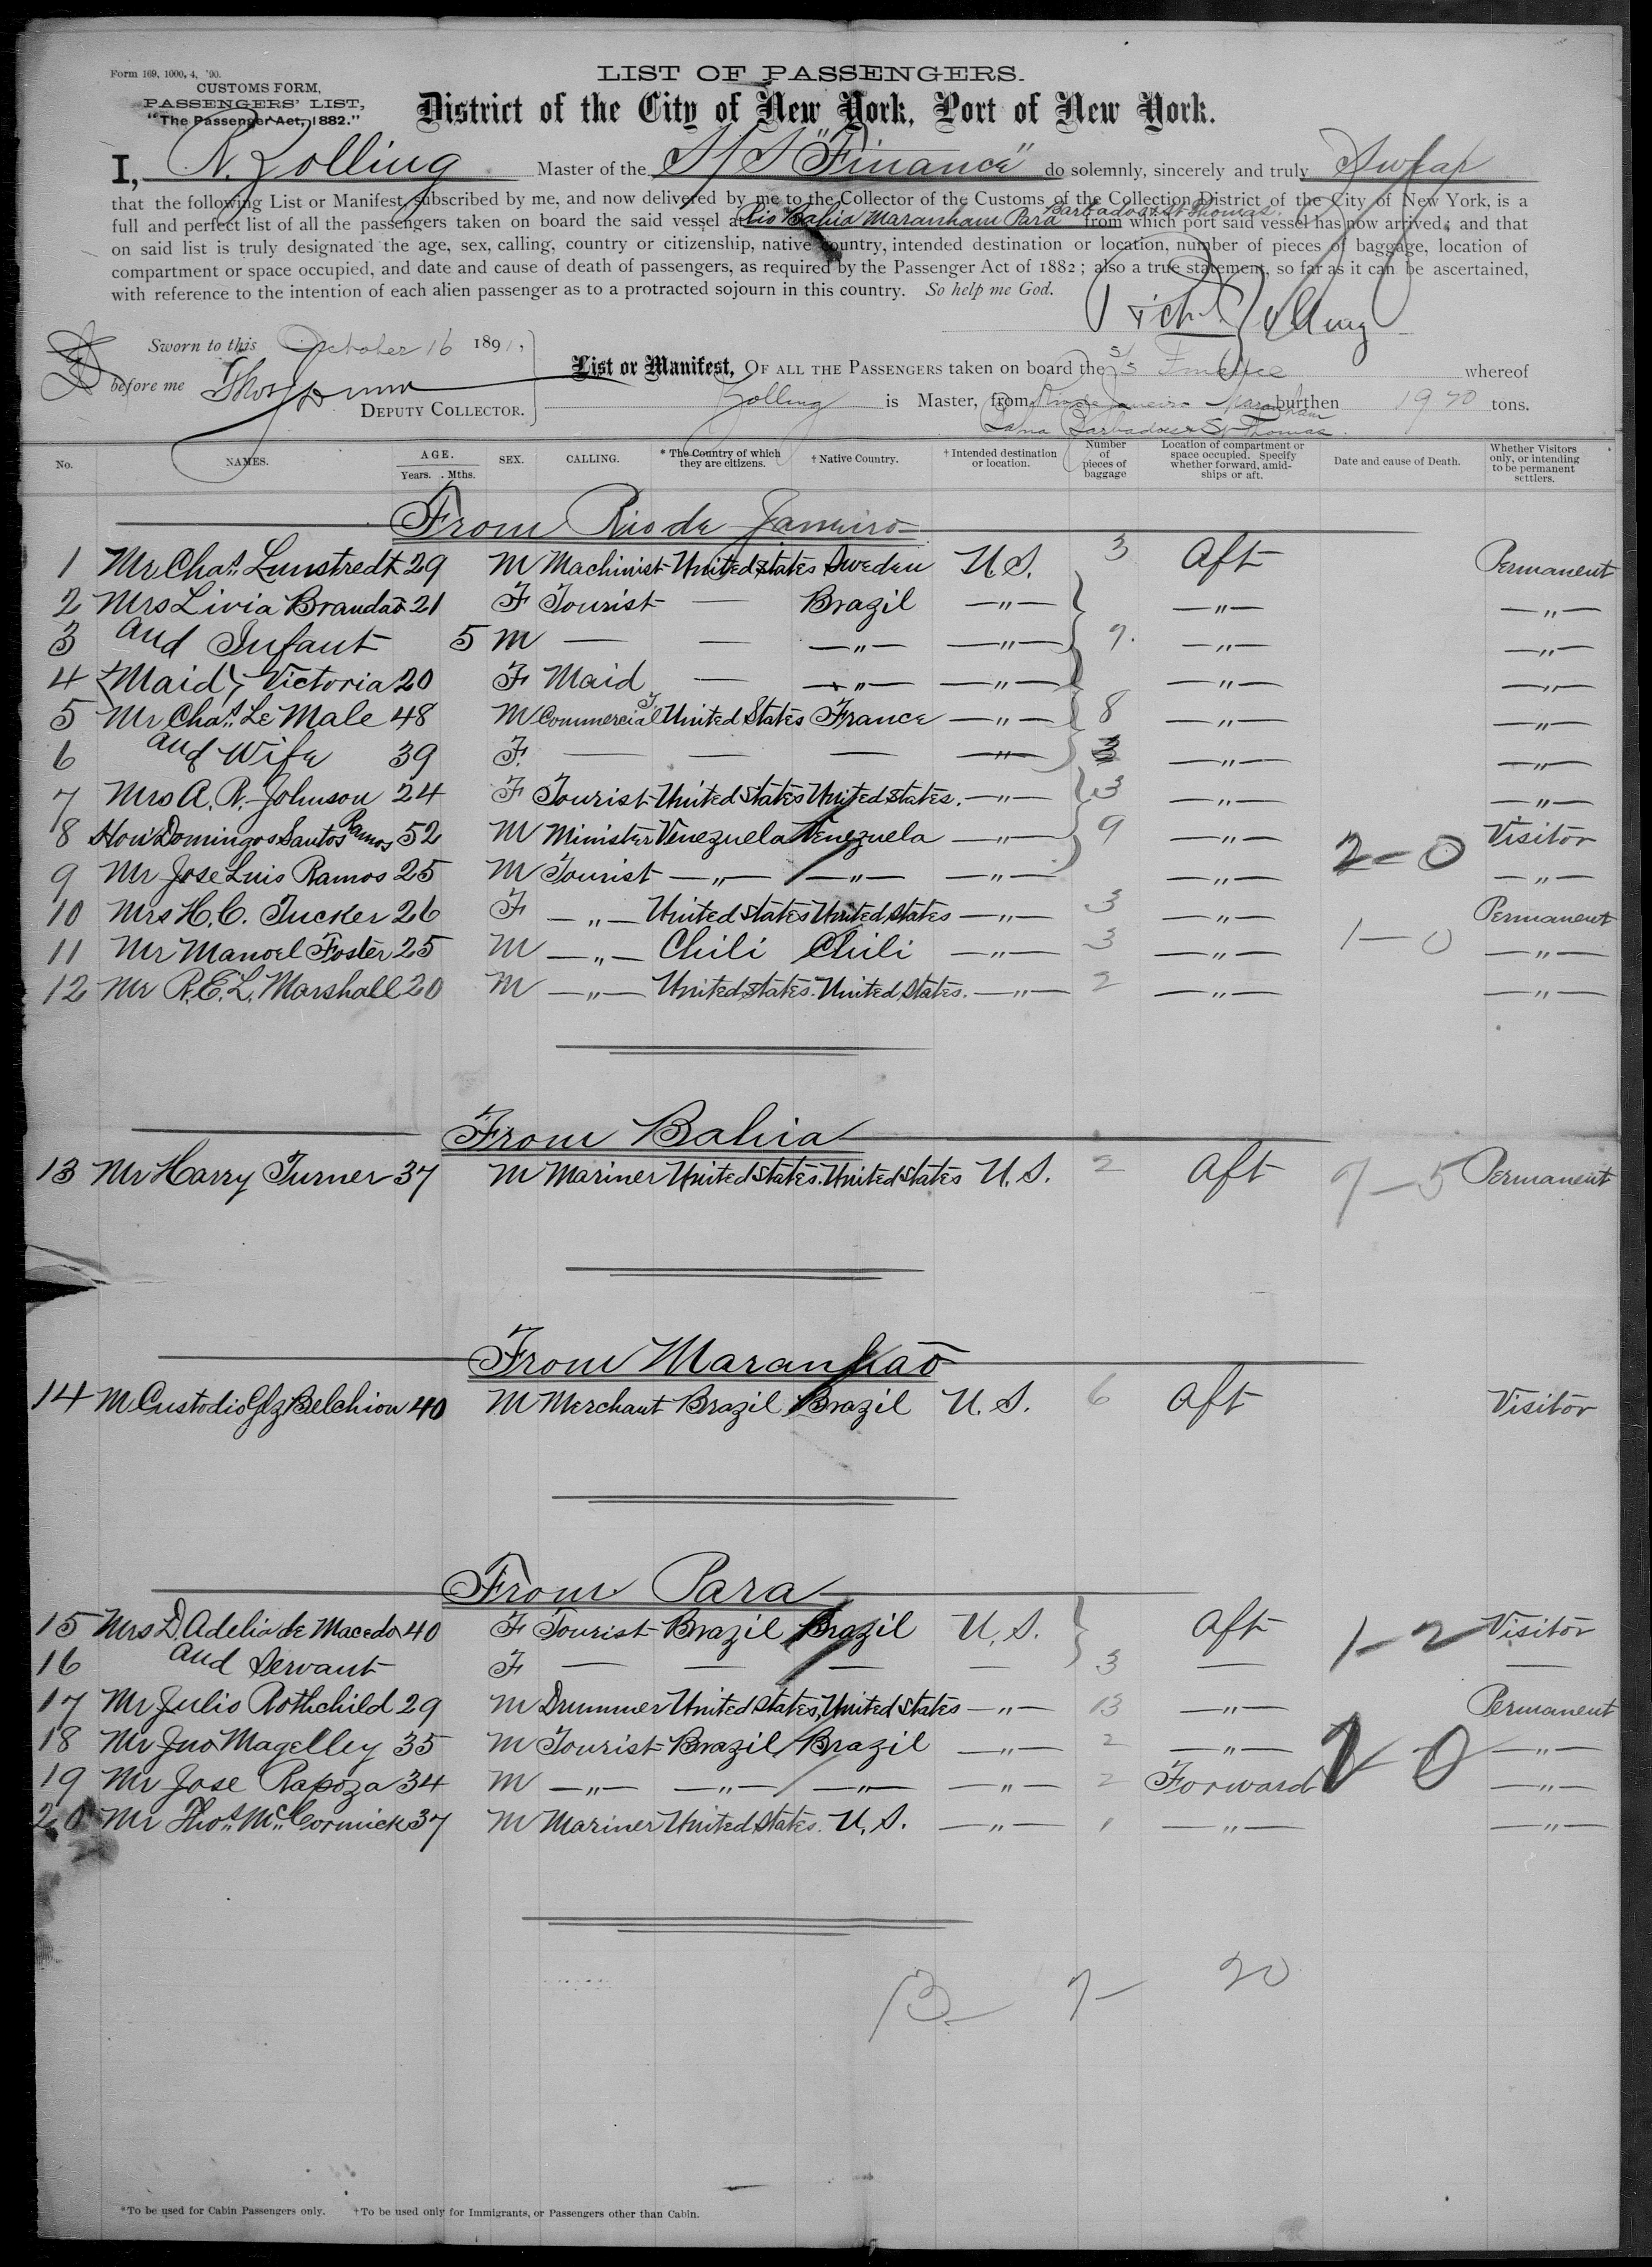 Form 169, 1000, 4, '90.
CUSTOMS FORM,
PASSENGERS' LIST,
"The Passenger Act, 1882."
LIST OF PASSENGERS.
District of the City of New York, Port of New York.
I, N. Zolling Master of the S/S "Finance" do solemnly, sincerely and truly Swear
that the following List or Manifest, subscribed by me, and now delivered by me to the Collector of the Customs of the Collection District of the City of New York, is a
full and perfect list of all the passengers taken on board the said vessel at Rio Bahia Maranham Para Barbados & St Thomas. from which port said vessel has now arrived; and that
on said list is truly designated the age, sex, calling, country or citizenship, native country, intended destination or location, number of pieces of baggage, location of
compartment or space occupied, and date and cause of death of passengers, as required by the Passenger Act of 1882; also a true statement, so far as it can be ascertained,
with reference to the intention of each alien passenger as to a protracted sojourn in this country. So help me God.
Zolling
Sworn to this October 16 1891,
before me
DEPUTY COLLECTOR.
List or Manifest, OF ALL THE PASSENGERS taken on board the S/S Finance whereof
Zolling is Master, from Rio de Janeiro Maranham burthen 1970 tons.
Para Barbadoes & St Thomas.
No. NAMES. AGE. Years. Mths. SEX. CALLING. * The Country of which they are citizens. † Native Country. † Intended destination or location. Number of pieces of baggage Location of compartment or space occupied. Specify whether forward, amidships or aft. Date and cause of Death. Whether Visitors only, or intending to be permanent settlers.
From Rio de Janeiro
1 Mr Chas. Lunstredt 29 M Machinist United States Sweden U.S. 3 Aft Permanent
2 Mrs Livia Brandaõ 21 F Tourist — Brazil —"— —"— —"—
3 and Infant 5 M — — —"— —"— 7. —"— —"—
4 (Maid) Victoria 20 F Maid — —"— —"— —"— —"—
5 Mr Chas. Le Male 48 M Commercial T United States France —"— 8 —"— —"—
6 and Wife 39 F. — — — —"— 3 —"— —"—
7 Mrs A. R. Johnson 24 F Tourist United States United States. —"— 3 —"— —"—
8 Hon Domingos Santos Ramos 52 M Minister Venezuela Venezuela —"— 9 —"— 2-0 Visitor
9 Mr Jose Luis Ramos 25 M Tourist —"— —"— —"— —"— —"—
10 Mrs H. C. Tucker 26 F —"— United States United States —"— 3 —"— Permanent
11 Mr Manoel Foster 25 M —"— Chili Chili —"— 3 —"— 1-0 —"—
12 Mr R. E. L. Marshall 20 M —"— United States. United States. —"— 2 —"— —"—
From Bahia
13 Mr Harry Turner 37 M Mariner United States. United States U.S. 2 Aft 7-5 Permanent
From Maranhaõ
14 M Custodio Glz Belchior 40 M Merchant Brazil Brazil U.S. 6 Aft Visitor
From Para
15 Mrs D. Adelia de Macedo 40 F Tourist Brazil Brazil U.S. Aft 1-2 Visitor
16 and Servant F — — — — 3 — —
17 Mr Julio Rothchild 29 M Drummer United States, United States —"— 13 —"— Permanent
18 Mr Jno Magelley 35 M Tourist Brazil Brazil —"— 2 —"— —"—
19 Mr Jose Rapoza 34 M —"— —"— —"— —"— 2 Forward —"—
20 Mr Thos. McCormick 37 M Mariner United States. U.S. —"— 1 —"— —"—
13- 7- 20
*To be used for Cabin Passengers only. †To be used only for Immigrants, or Passengers other than Cabin.